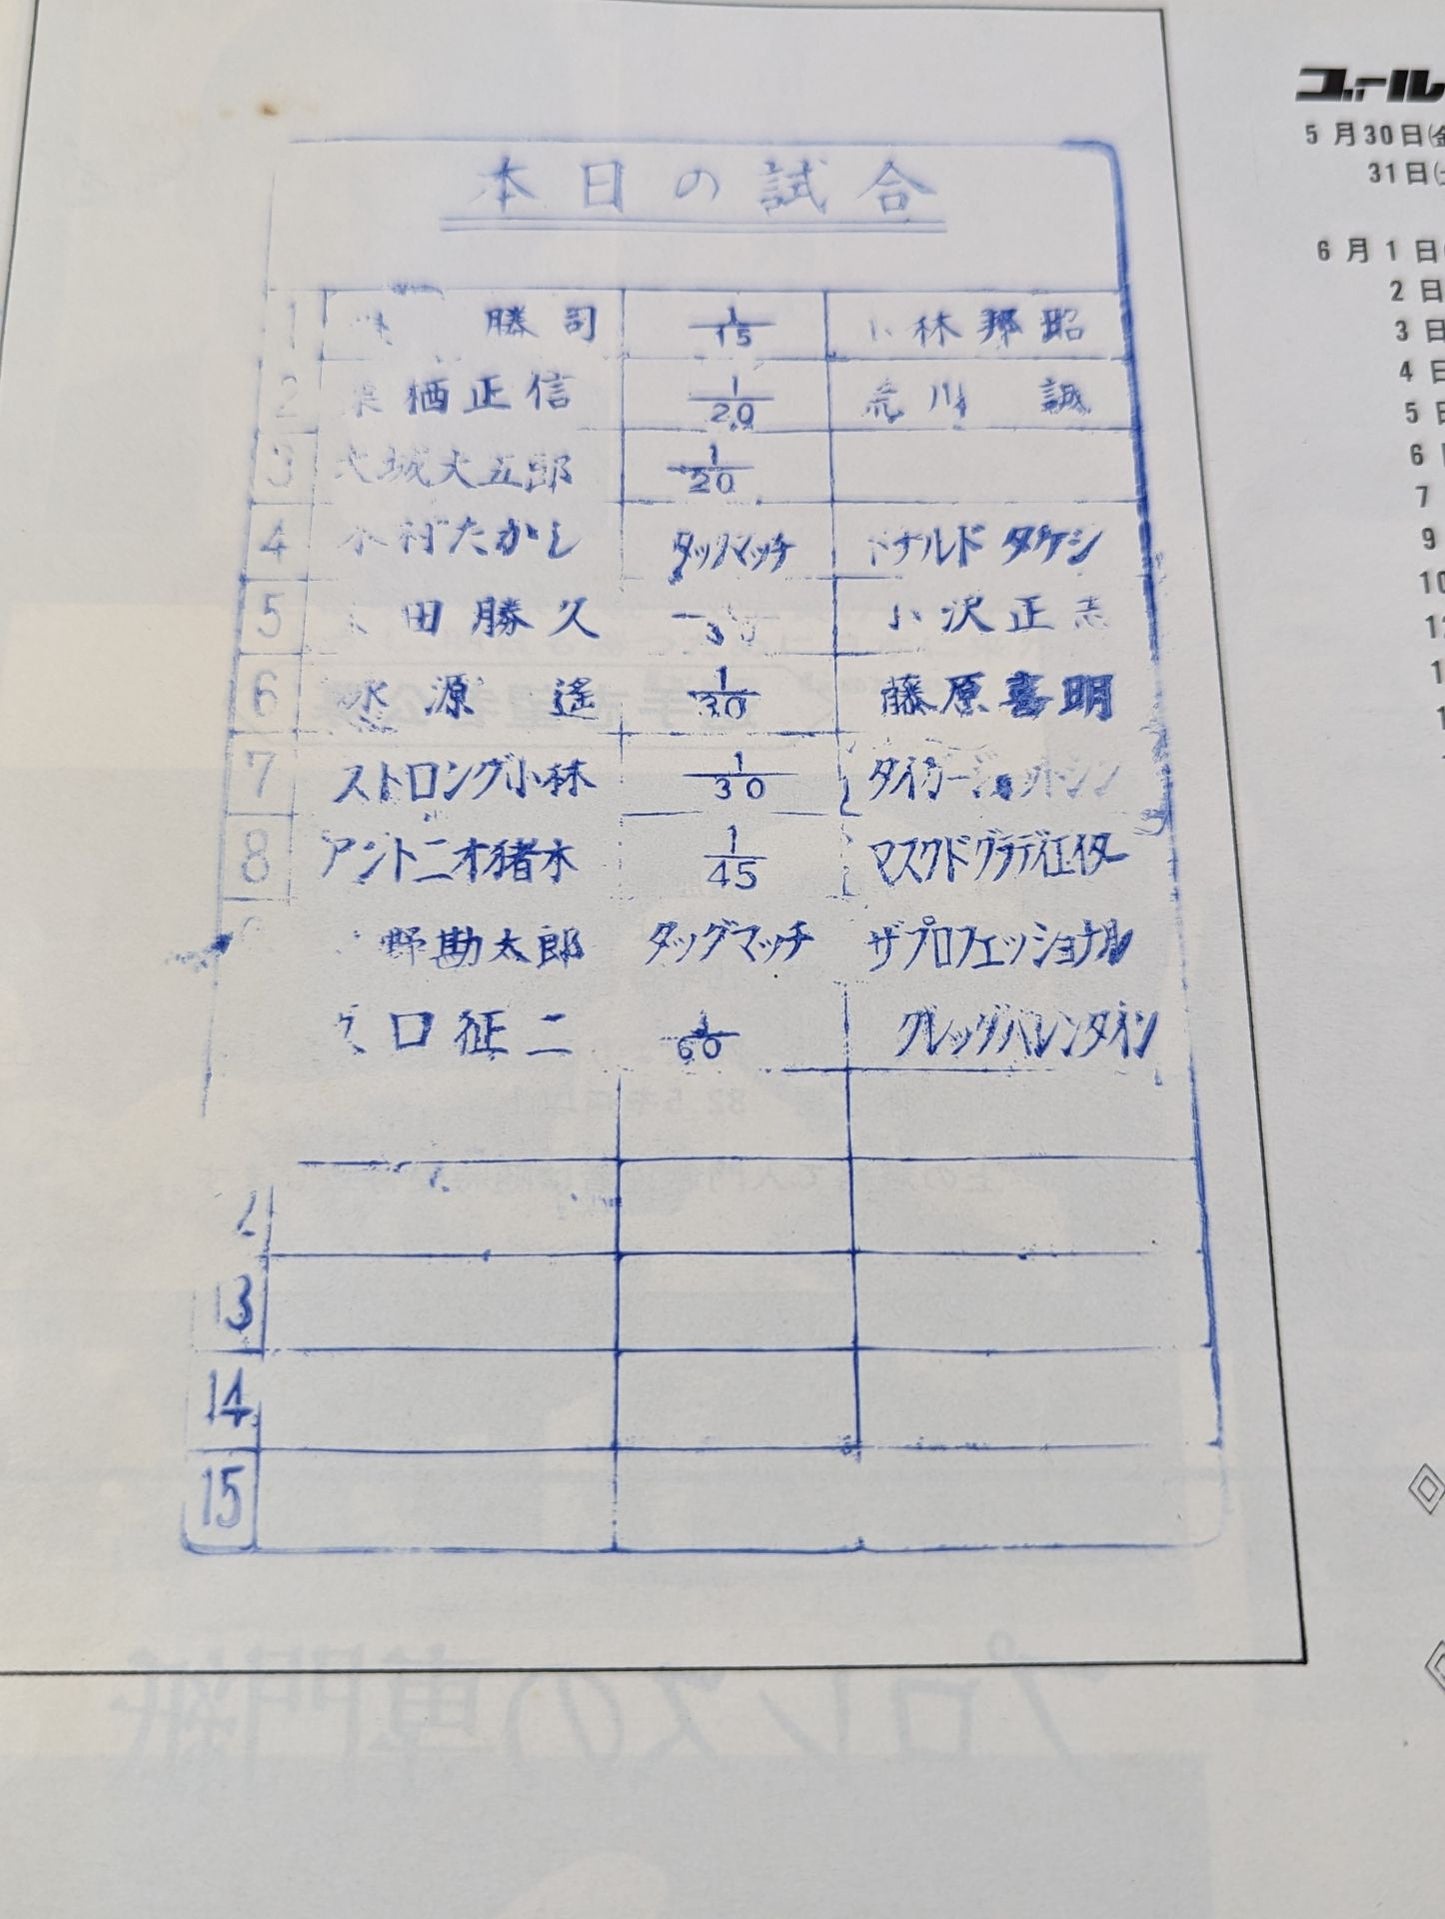 本日の試合
1 勝司 1/15 小林邦昭
2 栗栖正信 1/20 荒川 誠
3 大城大五郎 1/20
4 木村たかし タッグマッチ ドナルドタケシ
5 田勝久 小沢正志
6 永源 遙 1/30 藤原喜明
7 ストロング小林 1/30 タイガージェットシン
8 アントニオ猪木 1/45 マスクドグラディエイター
野勘太郎 タッグマッチ ザプロフェッショナル
口征二 1/60 グレッグバレンタイン
13
14
15
ゴール
5月30日(金
31日(土
6月1日
2日
3日
4日
5日
6
7
9
10